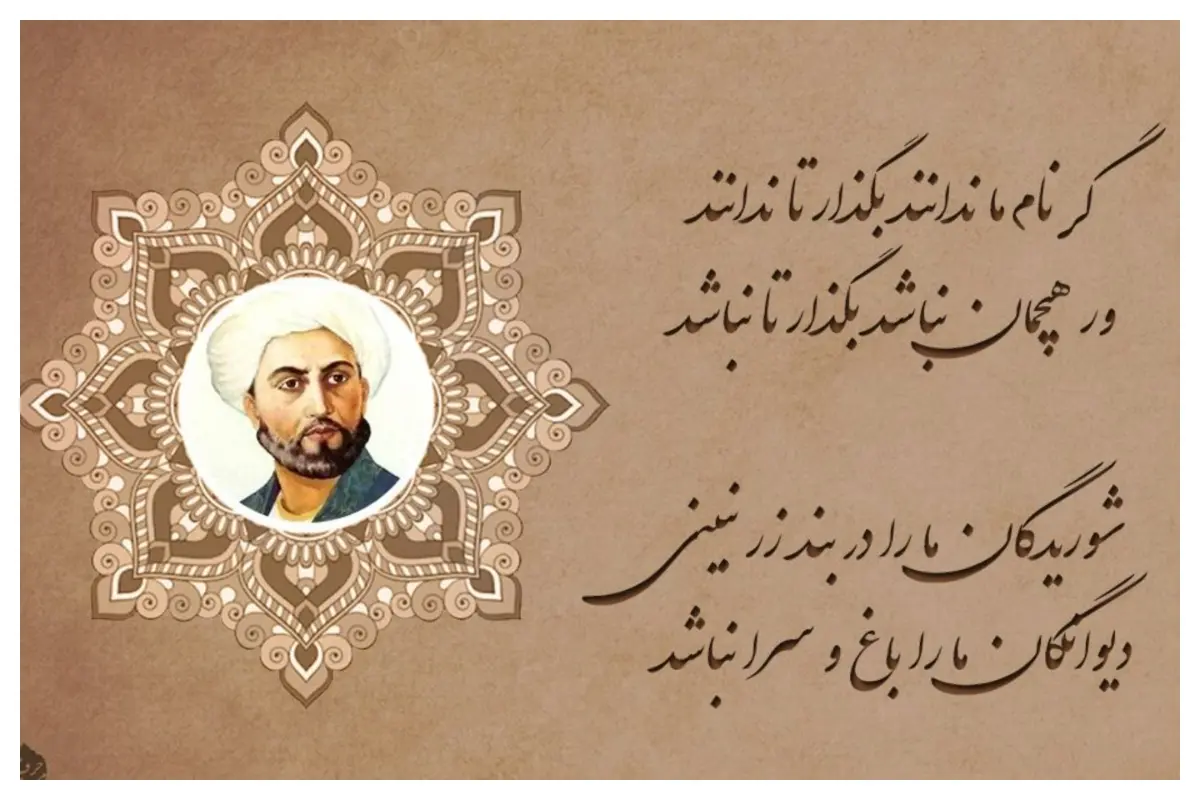 گر نام ما ندانند بگذار تا ندانند
ور هیچمان نباشد بگذار تا نباشد
شوریدگان ما را در بند زر نبینی
دیوانگان ما را باغ و سرا نباشد